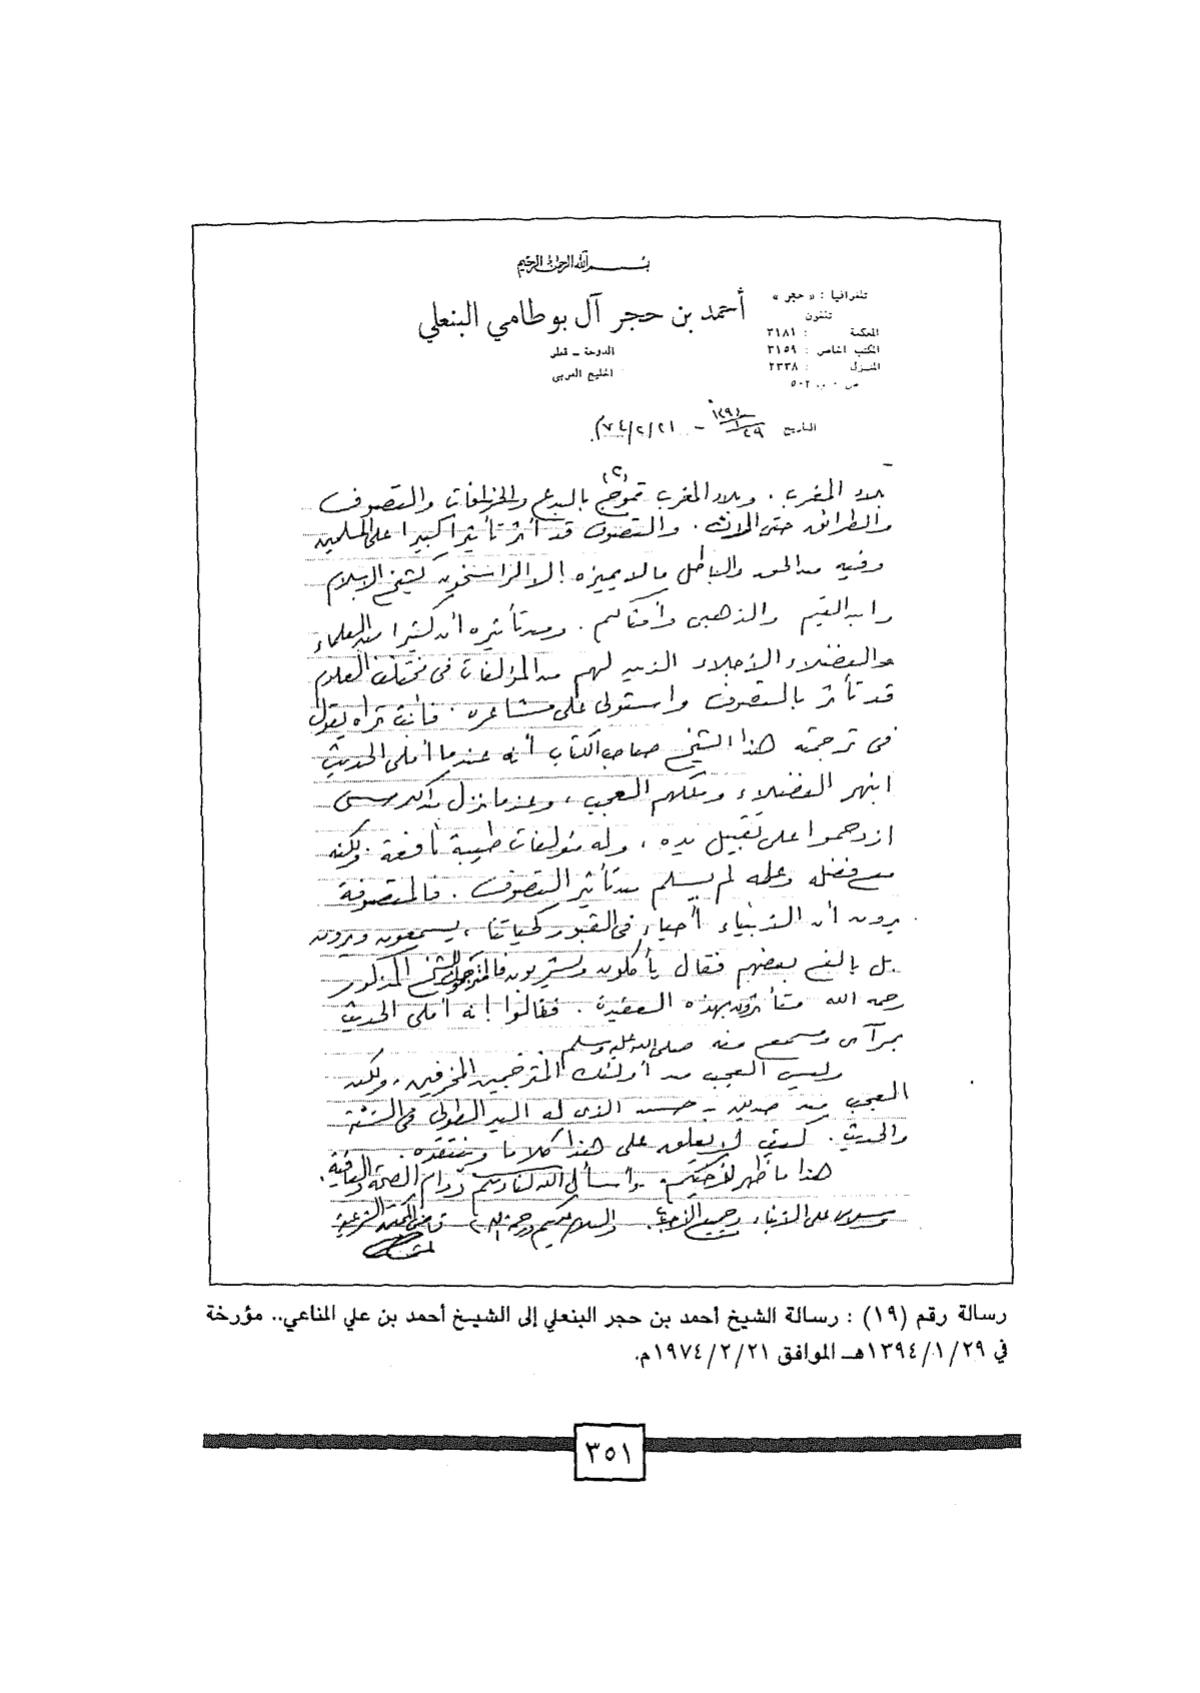 بسم الله الرحمن الرحيم
أحمد بن حجر آل بوطامي البنعلي
الدوحة - قطر
الخليج العربي
تلغرافيا : « حجر »
تلفون
المحكمة : ٣١٨١
المكتب الخاص : ٣١٥٩
المنزل : ٢٣٣٨
ص . ب ٥٠٢
التاريخ ٢٩/١/١٣٩٤ - ٧٤/٢/٢١م
(٢)
بلاد المغرب . وبلاد المغرب تموج بالبدع والخرافات والتصوف
والطرائق حتى الآن . والتصوف قد أثر تأثيرا كبيرا على المسلمين
وفيه من الحق والباطل ما لا يميزه إلا الراسخون كشيخ الإسلام
وابن القيم والذهبي وأمثالهم . ومن تأثيره أن كثيرا من العلماء
والفضلاء الأجلاء الذين لهم من المؤلفات في مختلف العلوم
قد تأثر بالتصوف واستولى على مشاعره . فأنت تراه يقول
في ترجمة هذا الشيخ صاحب الكتاب أنه عندما أملى الحديث
انبهر الفضلاء وتملكهم العجب ، وعندما نزل من الكرسي
ازدحموا على تقبيل يده ، وله مؤلفات طيبة نافعة . ولكنه
مع فضله وعلمه لم يسلم من تأثير التصوف . فالمتصوفة
يرون أن الأنبياء أحياء في القبور كحياتنا ، يسمعون ويرون
بل بالغ بعضهم فقال يأكلون ويشربون فالمترجمون للشيخ المذكور
رحمه الله متأثرون بهذه العقيدة . فقالوا إنه أملى الحديث
بمرآى ومسمع منه صلى الله عليه وسلم
وليس العجب من أولئك المترجمين المخرفين ، ولكن
العجب من صديق حسن الذي له اليد الطولى في السنة
والحديث . كيف لم يعلق على هذا كلاما وينتقده .
هذا ما ظهر لأخيكم . وأسأل الله لنا ولكم دوام الصحة والعافية .
وسلامي على الأبناء وجميع الإخوان . والسلام عليكم ورحمة الله قاضي المحكمة الشرعية
رسالة رقم (١٩) : رسالة الشيخ أحمد بن حجر البنعلي إلى الشيخ أحمد بن علي المناعي.. مؤرخة
في ١٣٩٤/١/٢٩هـ الموافق ١٩٧٤/٢/٢١م.
٣٥١